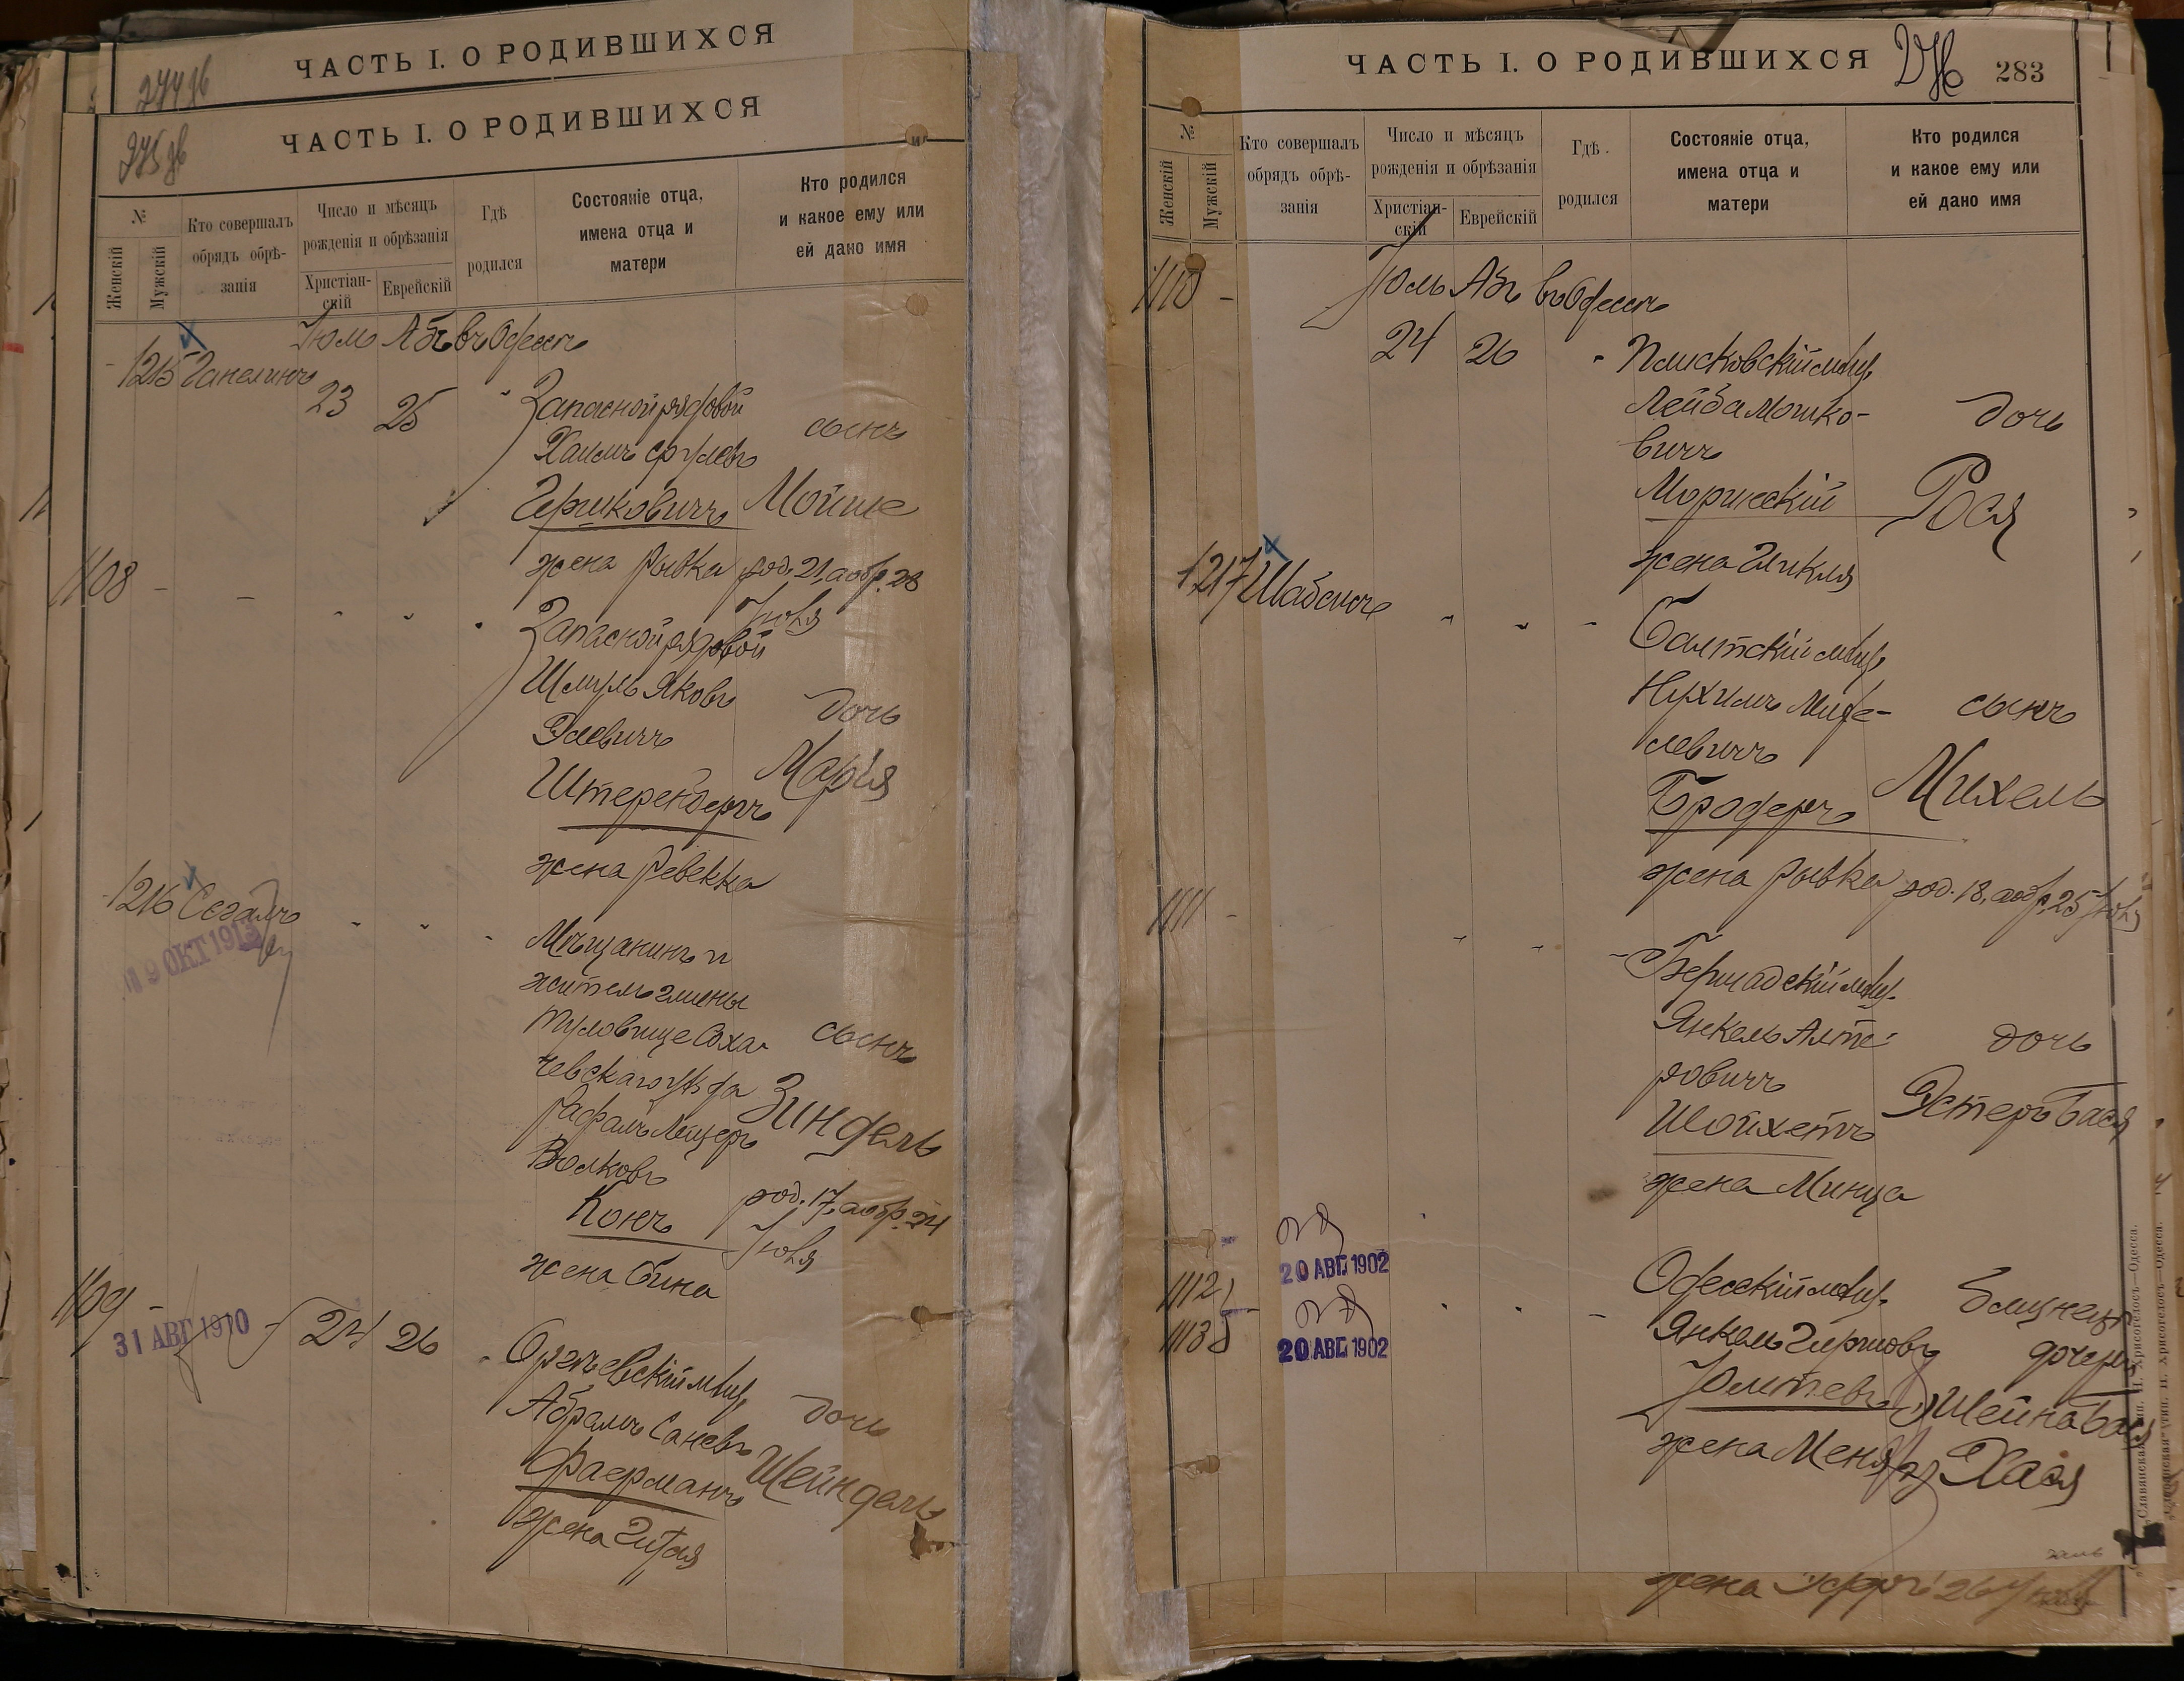 ЧАСТЬ I. О РОДИВШИХСЯ
ЧАСТЬ I. О РОДИВШИХСЯ
№
Женскій
Мужскій
Кто совершалъ
обрядъ обрѣ-
занія
Число и мѣсяцъ
рожденія и обрѣзанія
Христіан-
скій
Еврейскій
Гдѣ
родился
Состояніе отца,
имена отца и
матери
Кто родился
и какое ему или
ей дано имя
Іюль Абъ въ Одессѣ
1215 Ганелинъ
23 25
Запасной рядовой
Хаимъ Срулевъ
сынъ
Гершковичъ Мойше
жена Рывка род. 21, а обр. 28
Іюля
1108
Запасной рядовой
Шмуль Яковъ
дочь
Элевичъ
Марія
Штеренбергъ
жена Ревекка
1216 Сегалъ
9 ОКТ 1913
Мѣщанинъ и
житель гмины
Туловице Соха-
сынъ
чевскаго уѣзда
Зиндель
Рафалъ Лейзеръ
Волковъ
Конъ
род. 17, а обр. 24
Іюля
жена Бина
1109
31 АВГ 1910
24 26
Оргѣевскій мѣщ.
Абрамъ Саневъ
дочь
Фаерманъ
Шейндель
жена Гитля
ЧАСТЬ I. О РОДИВШИХСЯ
283
№
Женскій
Мужскій
Кто совершалъ
обрядъ обрѣ-
занія
Число и мѣсяцъ
рожденія и обрѣзанія
Христіан-
скій
Еврейскій
Гдѣ
родился
Состояніе отца,
имена отца и
матери
Кто родился
и какое ему или
ей дано имя
1110
Іюль Абъ въ Одессѣ
24 26
мѣщ.
Лейба Мошко-
вичъ
дочь
Рося
жена
1217
Балтскій мѣщ.
Нухимъ Михе-
левичъ
сынъ
Бродеръ
Михель
жена Рывка род. 18, а обр. 25 Іюля
1111
Бершадскій мѣщ.
Янкель Алте-
ровичъ
дочь
Шойхетъ
Эстеръ Бася
жена Минца
20 АВГ. 1902
1112
1113
20 АВГ. 1902
Одесскій мѣщ.
Янкель Гершовъ
Юлтевъ
жена Меня
Близнецы
дочери
1) Шейна Бася
2) Хася
жена